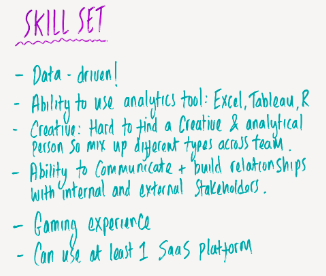 SKILL SET
- Data-driven!
- Ability to use analytics tool: Excel, Tableau, R
- Creative: Hard to find a Creative & analytical
person so mix up different types across team.
- Ability to Communicate + build relationships
with internal and external Stakeholders.
- Gaming experience
- Can use at least 1 SaaS platform